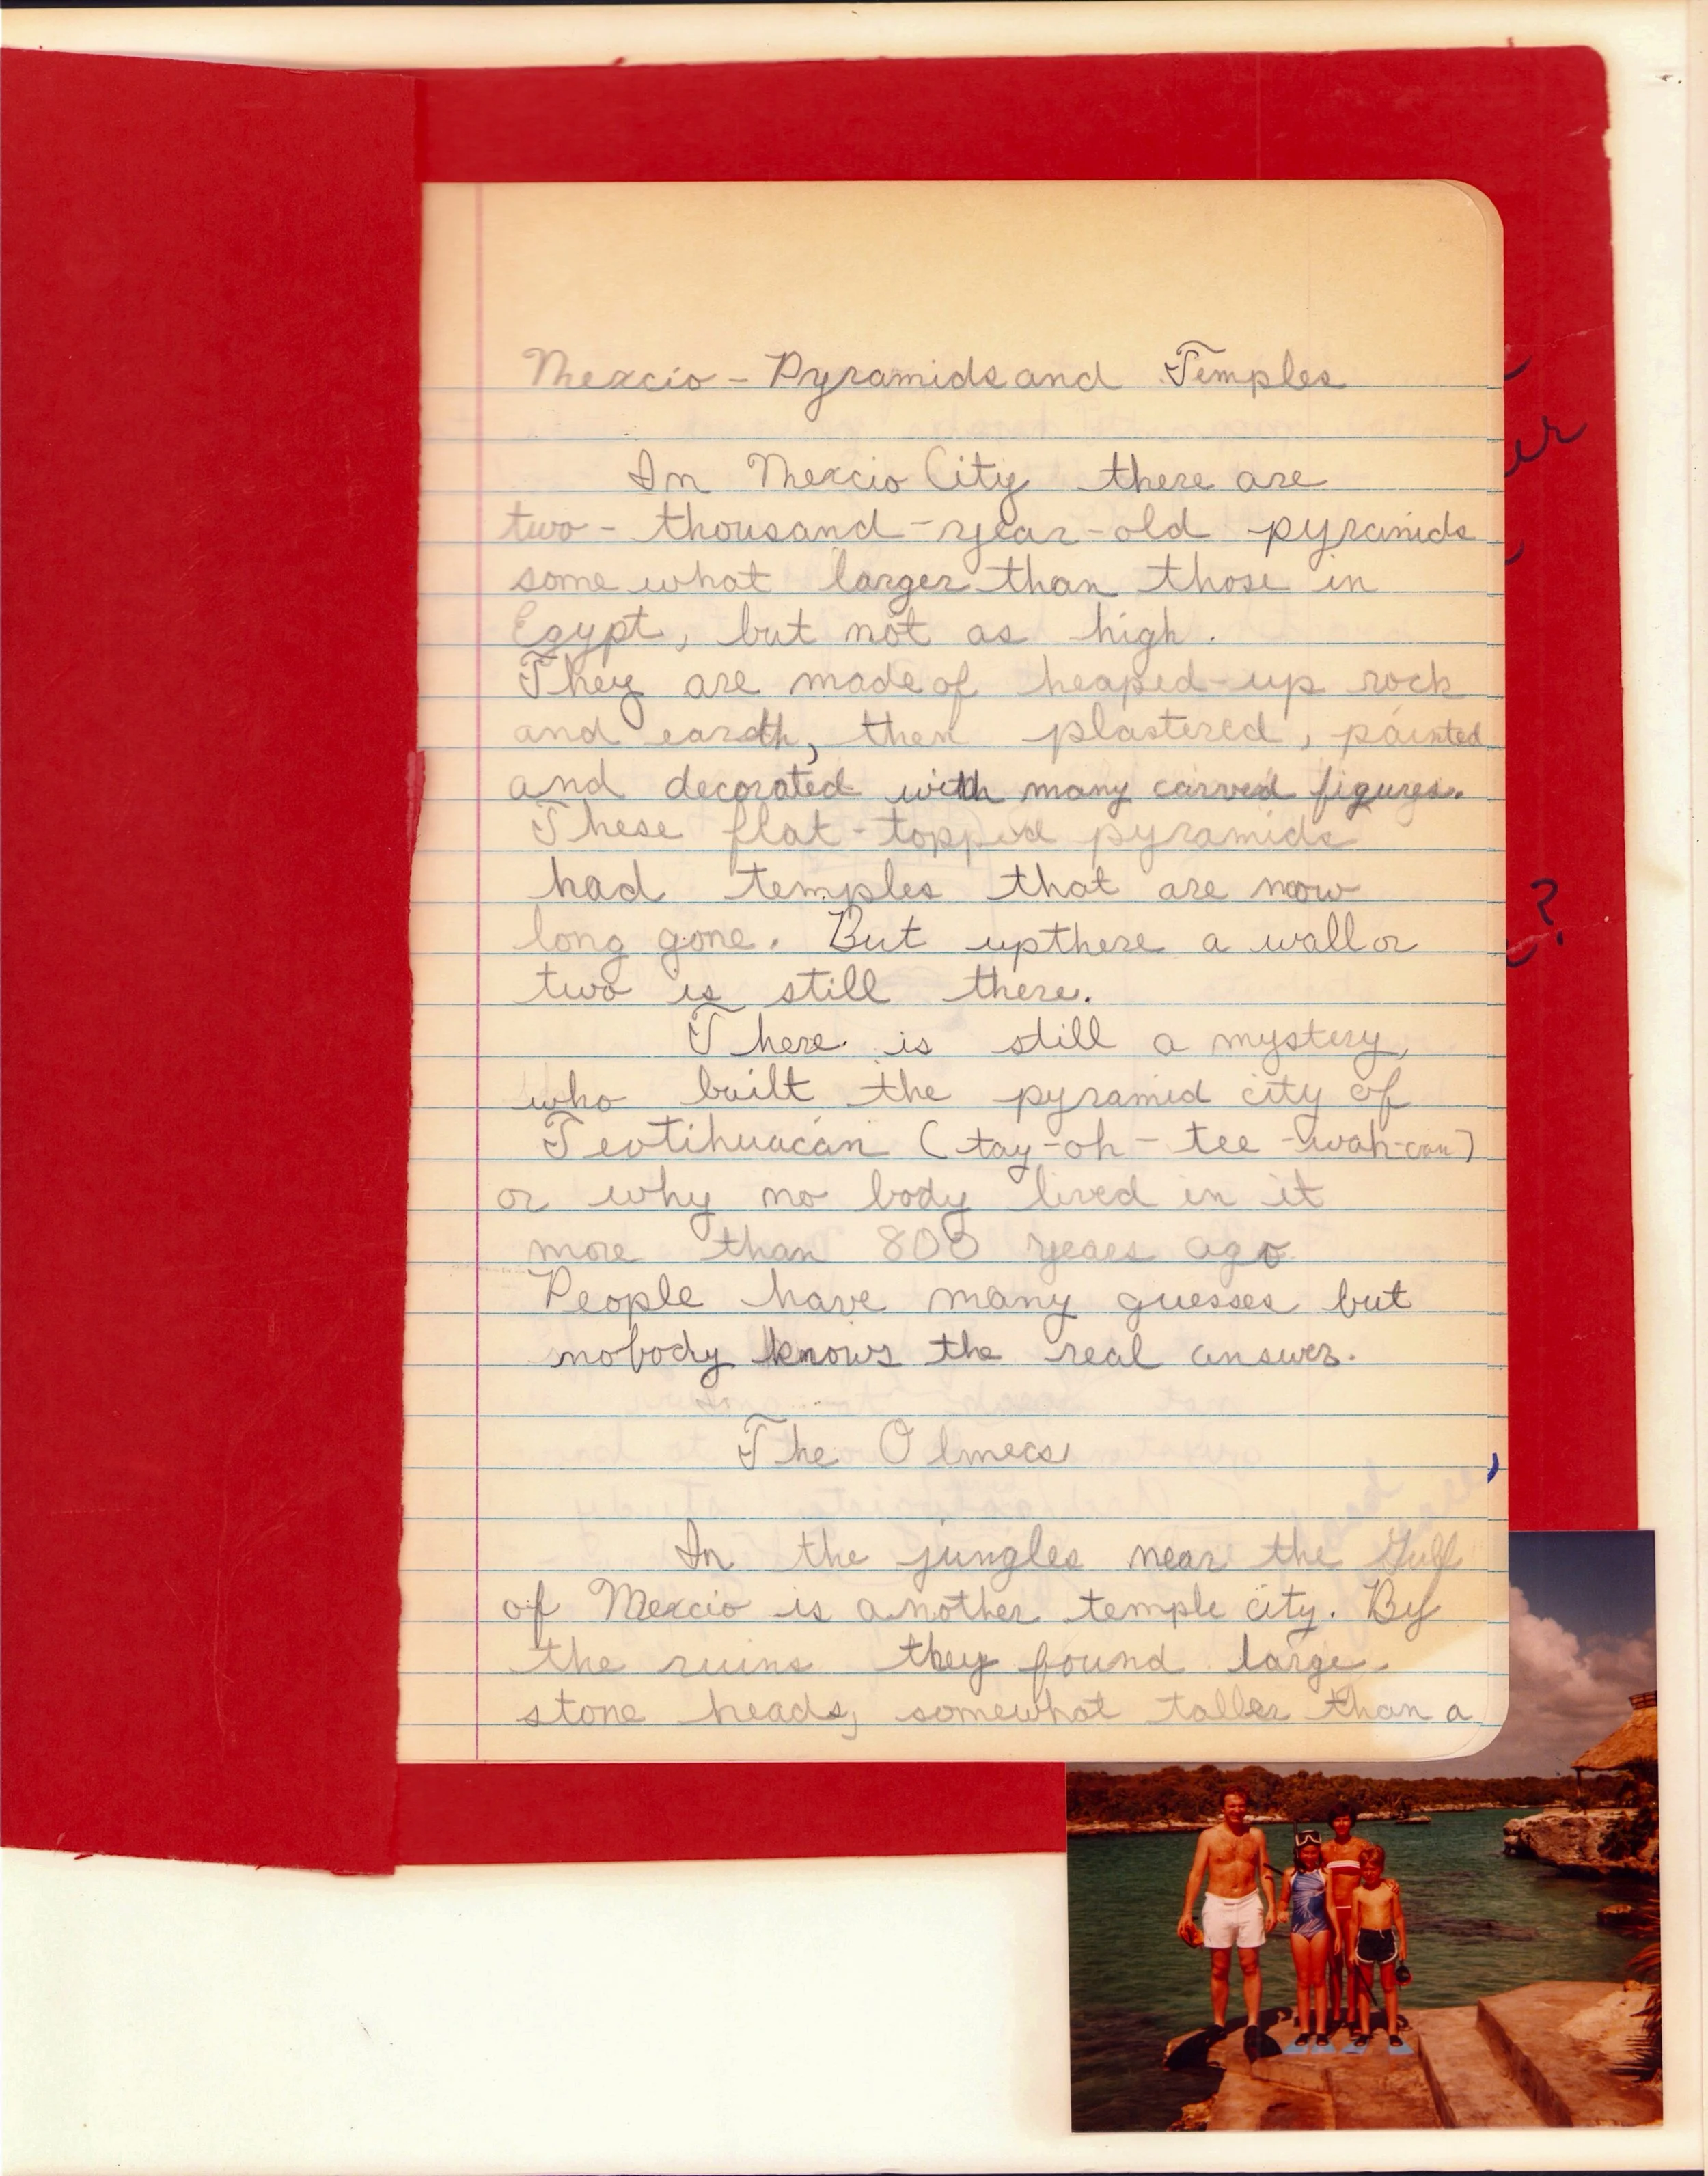 Mexcio - Pyramids and Temples
In Mexcio City there are
two - thousand - year - old pyramids
some what larger than those in
Egypt, but not as high.
They are made of heaped-up rock
and eardth, then plastered, painted
and decorated with many carved figures.
These flat-topped pyramids
had temples that are now
long gone. But up there a wall or
two is still there.
There is still a mystery,
who built the pyramid city of
Teotihuacán (tay-oh-tee-wah-can)
or why no body lived in it
more than 800 years ago
People have many guesses but
nobody knows the real answer.
The Olmecs
In the jungles near the Gulf
of Mexcio is another temple city. By
the ruins they found large
stone heads, somewhat taller than a
er
?